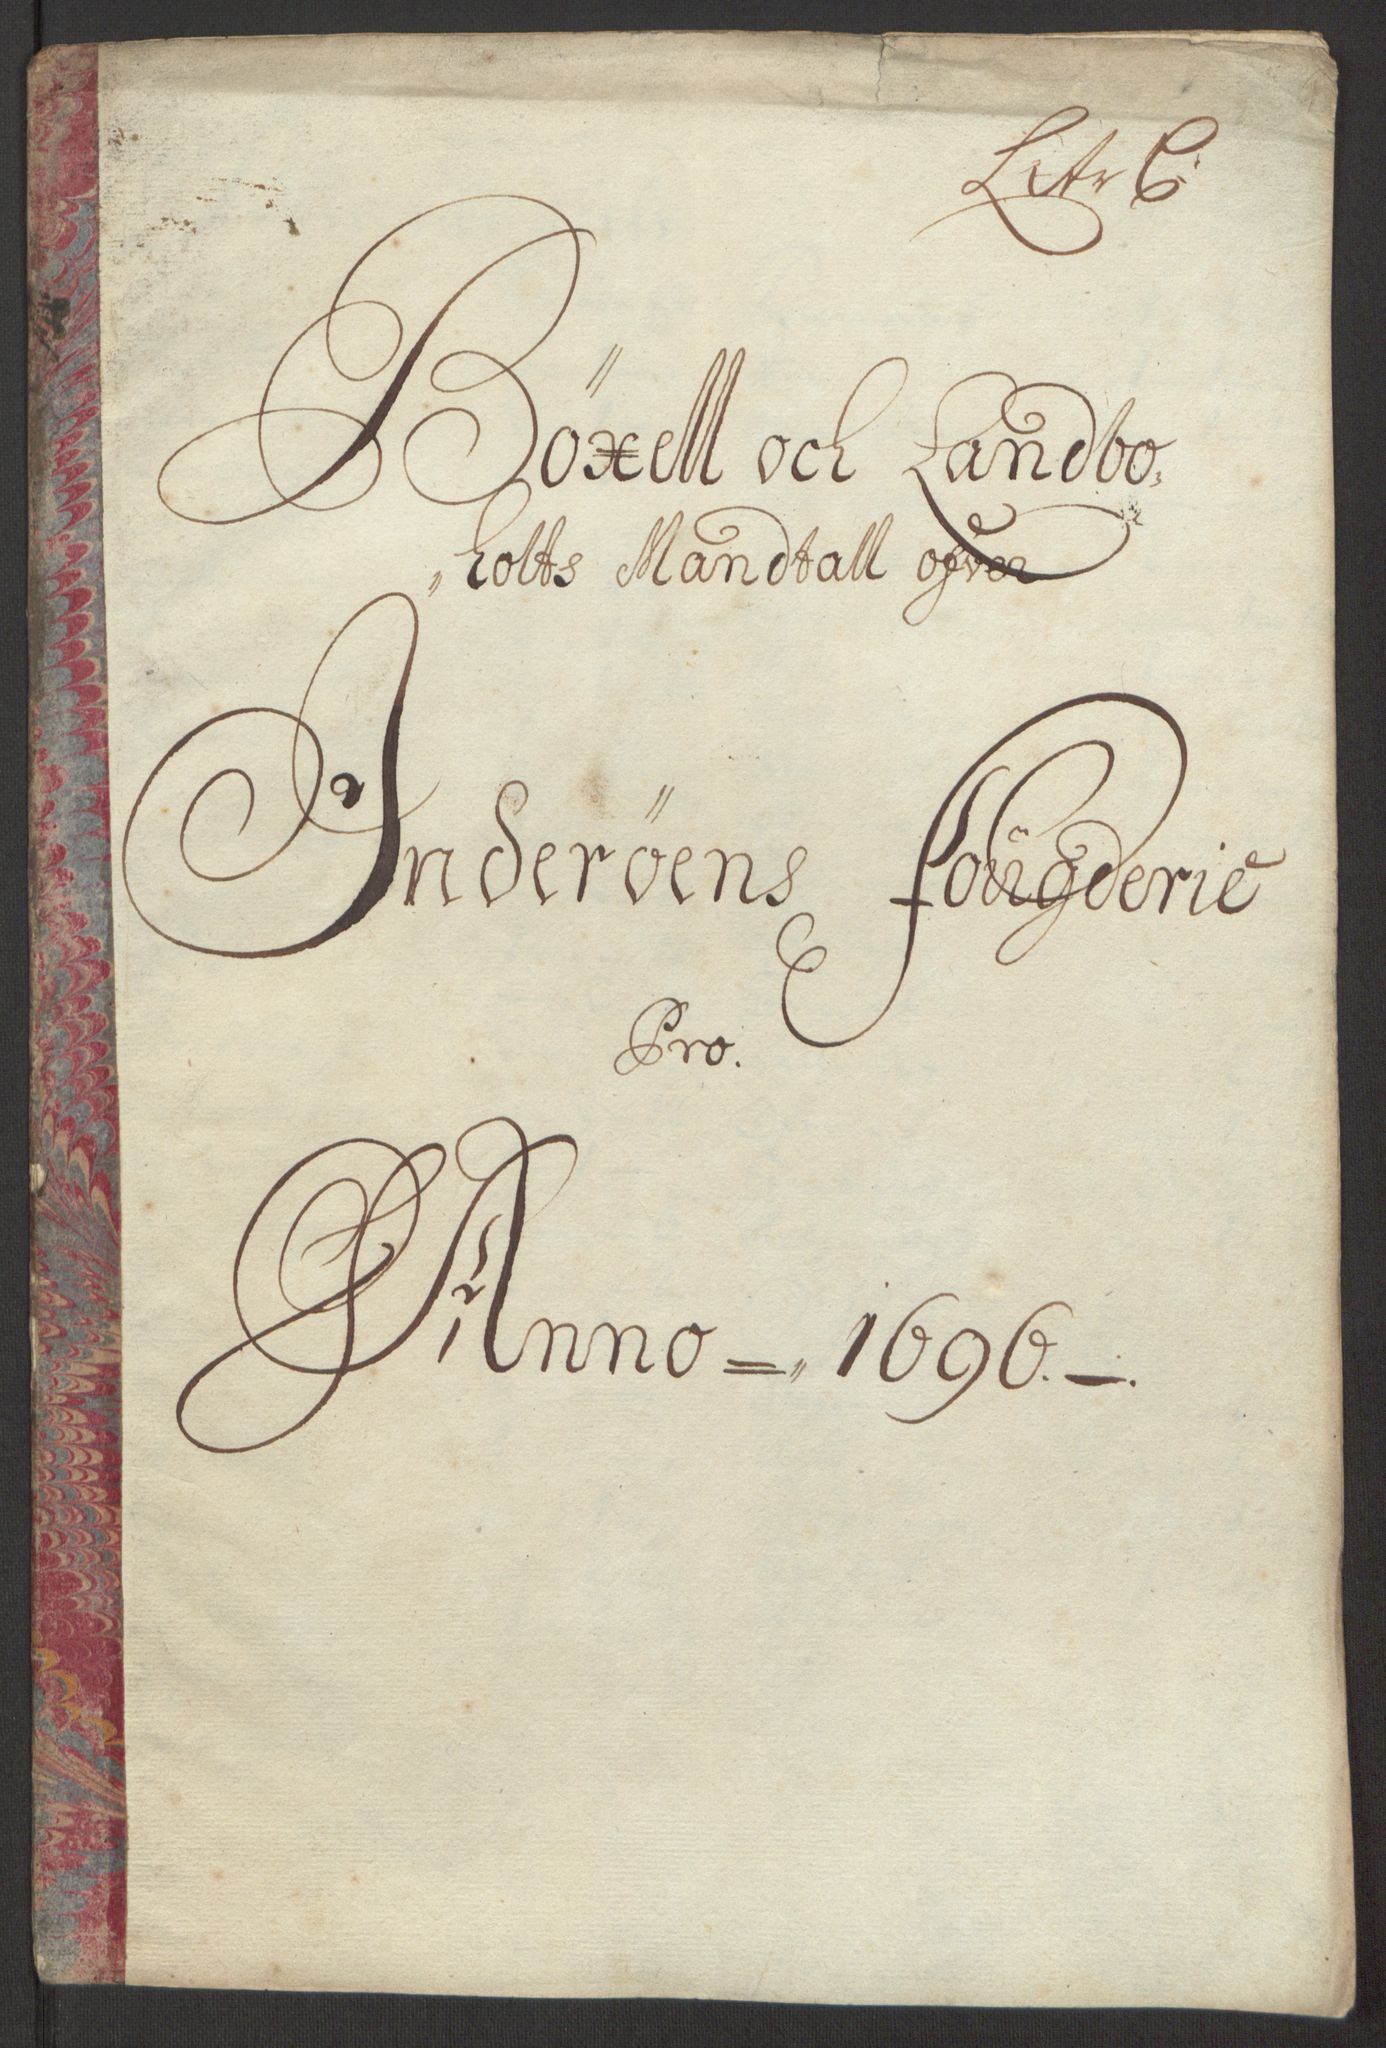 Litr C
Böxell och Landbo,
„holts Mandtall ofver
Inderöens fougderie
Pro.
Anno =„ 1696. –.